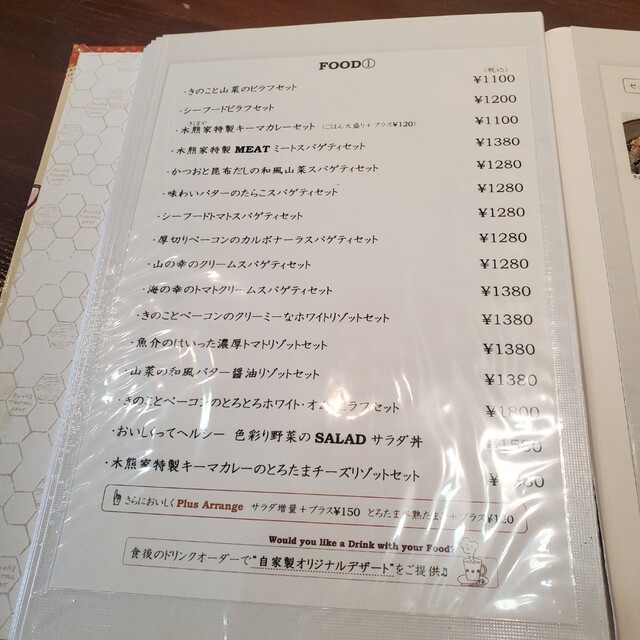 FOOD①
(税込)
・きのこと山菜のピラフセット ¥1100
・シーフードピラフセット ¥1200
・木熊家特製キーマカレーセット (ごはん大盛り+プラス¥120) ¥1100
・木熊家特製 MEAT ミートスパゲティセット ¥1380
・かつおと昆布だしの和風山菜スパゲティセット ¥1280
・味わいバターのたらこスパゲティセット ¥1280
・シーフードトマトスパゲティセット ¥1280
・厚切りベーコンのカルボナーラスパゲティセット ¥1280
・山の幸のクリームスパゲティセット ¥1280
・海の幸のトマトクリームスパゲティセット ¥1380
・きのことベーコンのクリーミーなホワイトリゾットセット ¥1380
・魚介のはいった濃厚トマトリゾットセット ¥1380
・山菜の和風バター醤油リゾットセット ¥1380
・きのことベーコンのとろとろホワイト・オムピラフセット ¥1800
・おいしくってヘルシー 色彩り野菜の SALAD サラダ丼
・木熊家特製キーマカレーのとろたまチーズリゾットセット
さらにおいしく Plus Arrange サラダ増量+プラス¥150 とろたま +プラス¥120
Would you like a Drink with your Food?
食後のドリンクオーダーで"自家製オリジナルデザート"をご提供♫